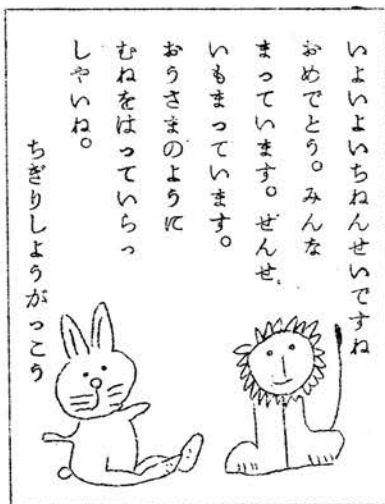 いよいよいちねんせいですね
おめでとう。みんな
まっています。ぜんせ
いもまっています。
おうさまのように
むねをはっていらっ
しゃいね。
ちぎりしようがっこう